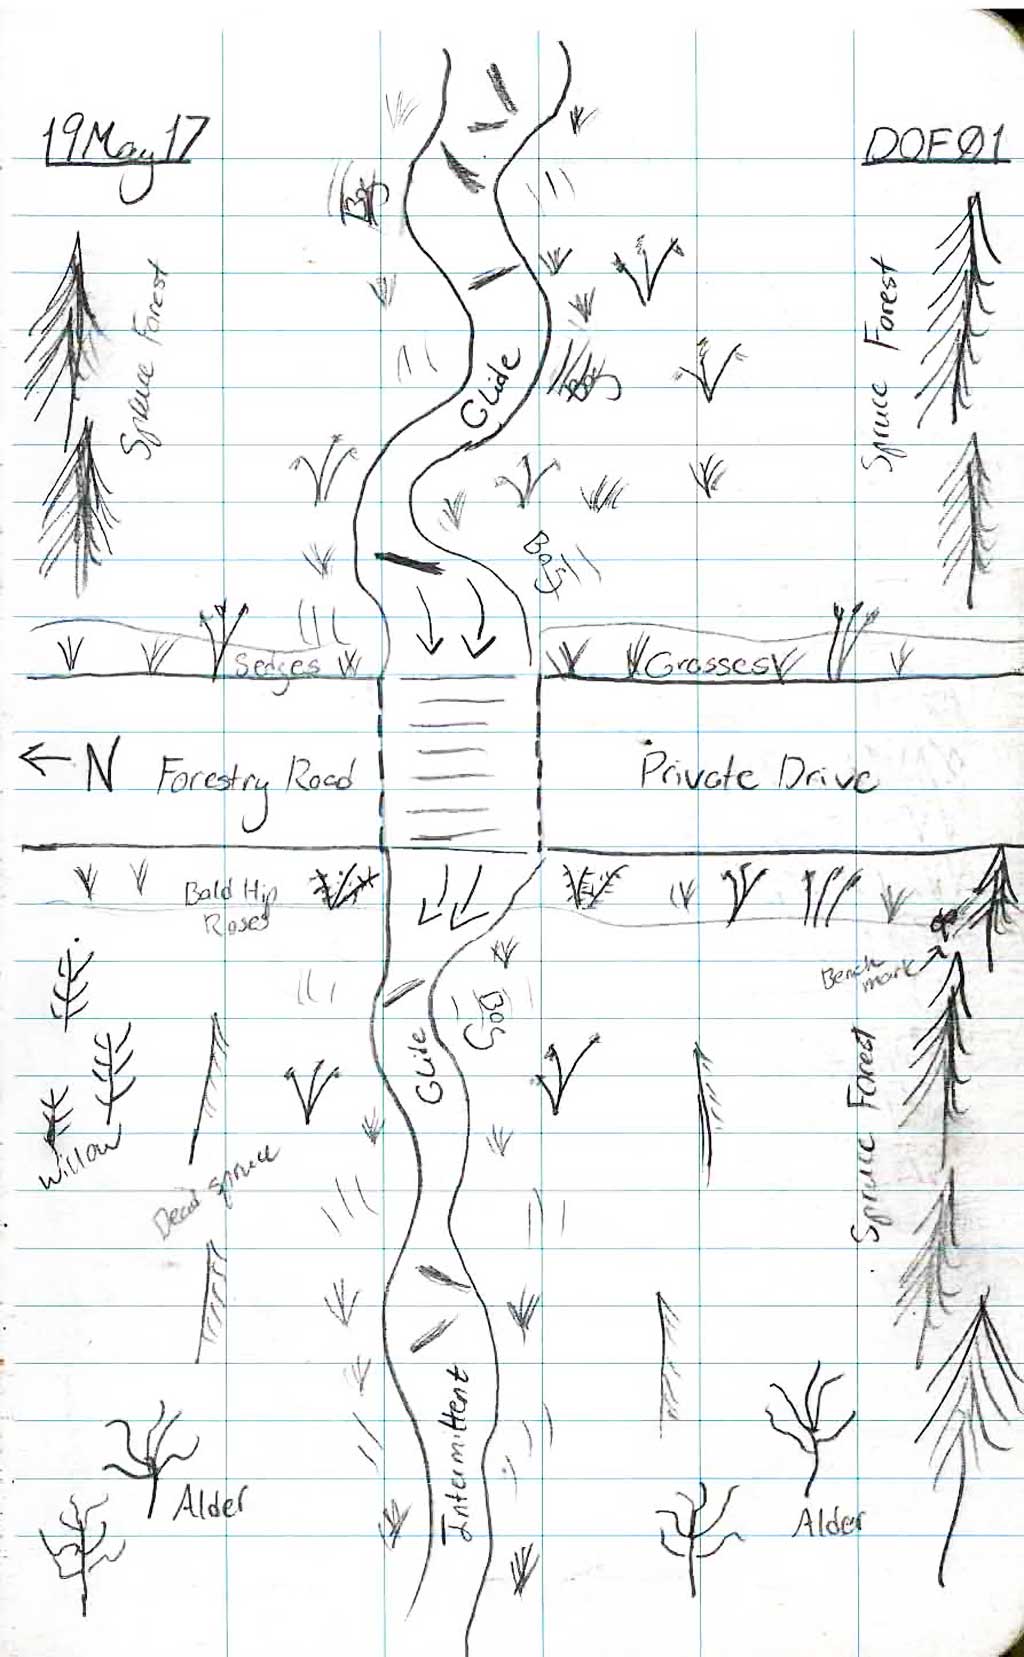 19 May 17
DOF01
Bog
Spruce Forest
Spruce Forest
Glide
Bog
Bog
Sedges
Grasses
N
Forestry Road
Private Drive
Bald Hip
Roses
Bench
mark
Bog
Glide
Spruce Forest
Willow
Dead spruce
Intermittent
Alder
Alder